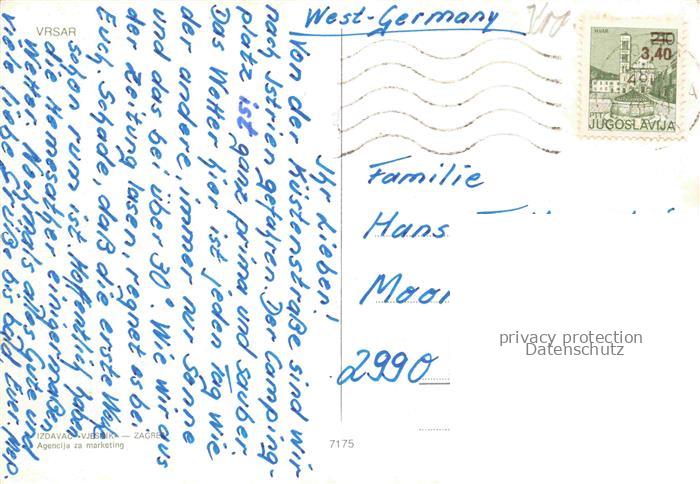 VRSAR
West-Germany
HVAR
2,10
3,40
PTT
JUGOSLAVIJA
Familie
Hans
Maar
2990
privacy protection
Datenschutz
Ihr Lieben!
Von der Küstenstraße sind wir
nach Istrien gefahren. Der Camping-
platz ist ganz prima und sauber.
Das Wetter hier ist jeden Tag wie
der andere, immer nur Sonne
und das bei über 30°. Wie wir aus
der Zeitung lasen, regnet es bei
Euch. Schade, daß die erste Woh
schon rum ist. Hoffentlich haben
die Homesather einigermaßen
Wetter. Nochmals alles Gute und
viele liebe Grüße bis bald Eure
IZDAVAČ »VJESNIK« — ZAGREB
Agencija za marketing
7175